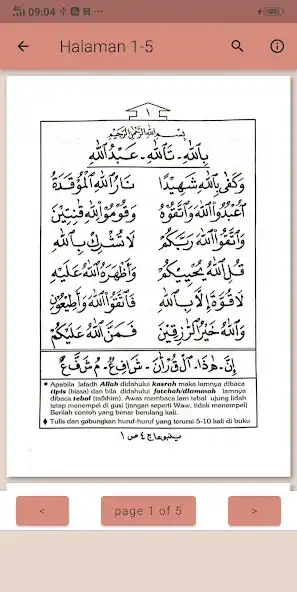 09:04
Halaman 1-5
١
بِسْمِ اللهِ الرَّحْمٰنِ الرَّحِيْمِ
بِاللهِ - تَاللهِ - عَبْدُ اللهِ
وَكَفٰى بِاللهِ شَهِيْدًا نَارُ اللهِ الْمُوْقَدَةُ
اُعْبُدُوا اللهَ وَاتَّقُوْهُ وَقُوْمُوْا لِلهِ قٰنِتِيْنَ
وَاتَّقُوا اللهَ رَبَّكُمْ لَا تُشْرِكْ بِاللهِ
قُلِ اللهُ يُحْيِيْكُمْ وَاَظْهَرَهُ اللهُ عَلَيْهِ
لَا قُوَّةَ اِلَّا بِاللهِ فَاتَّقُوا اللهَ وَاَطِيْعُوْنِ
وَاللهُ خَيْرُ الرّٰزِقِيْنَ فَمَنَّ اللهُ عَلَيْكُمْ
اِنَّ - هٰذَا - الْقُرْاٰنَ - شَافِعٌ - مُشَفَّعٌ
• Apabila lafadh Allah didahului kasroh maka lamnya dibaca
tipis (biasa) dan bila didahului fatchah/dlommah lamnya
dibaca tebal (tafkhim). Awas membaca lam tebal ujung lidah
tetap menempel di gusi (jangan seperti Waw, tidak menempel)
Berilah contoh yang benar berulang kali.
♦ Tulis dan gabungkan huruf-huruf yang terurai 5-10 kali di buku
ينبوعا ج ٤ ص ١
< page 1 of 5 >